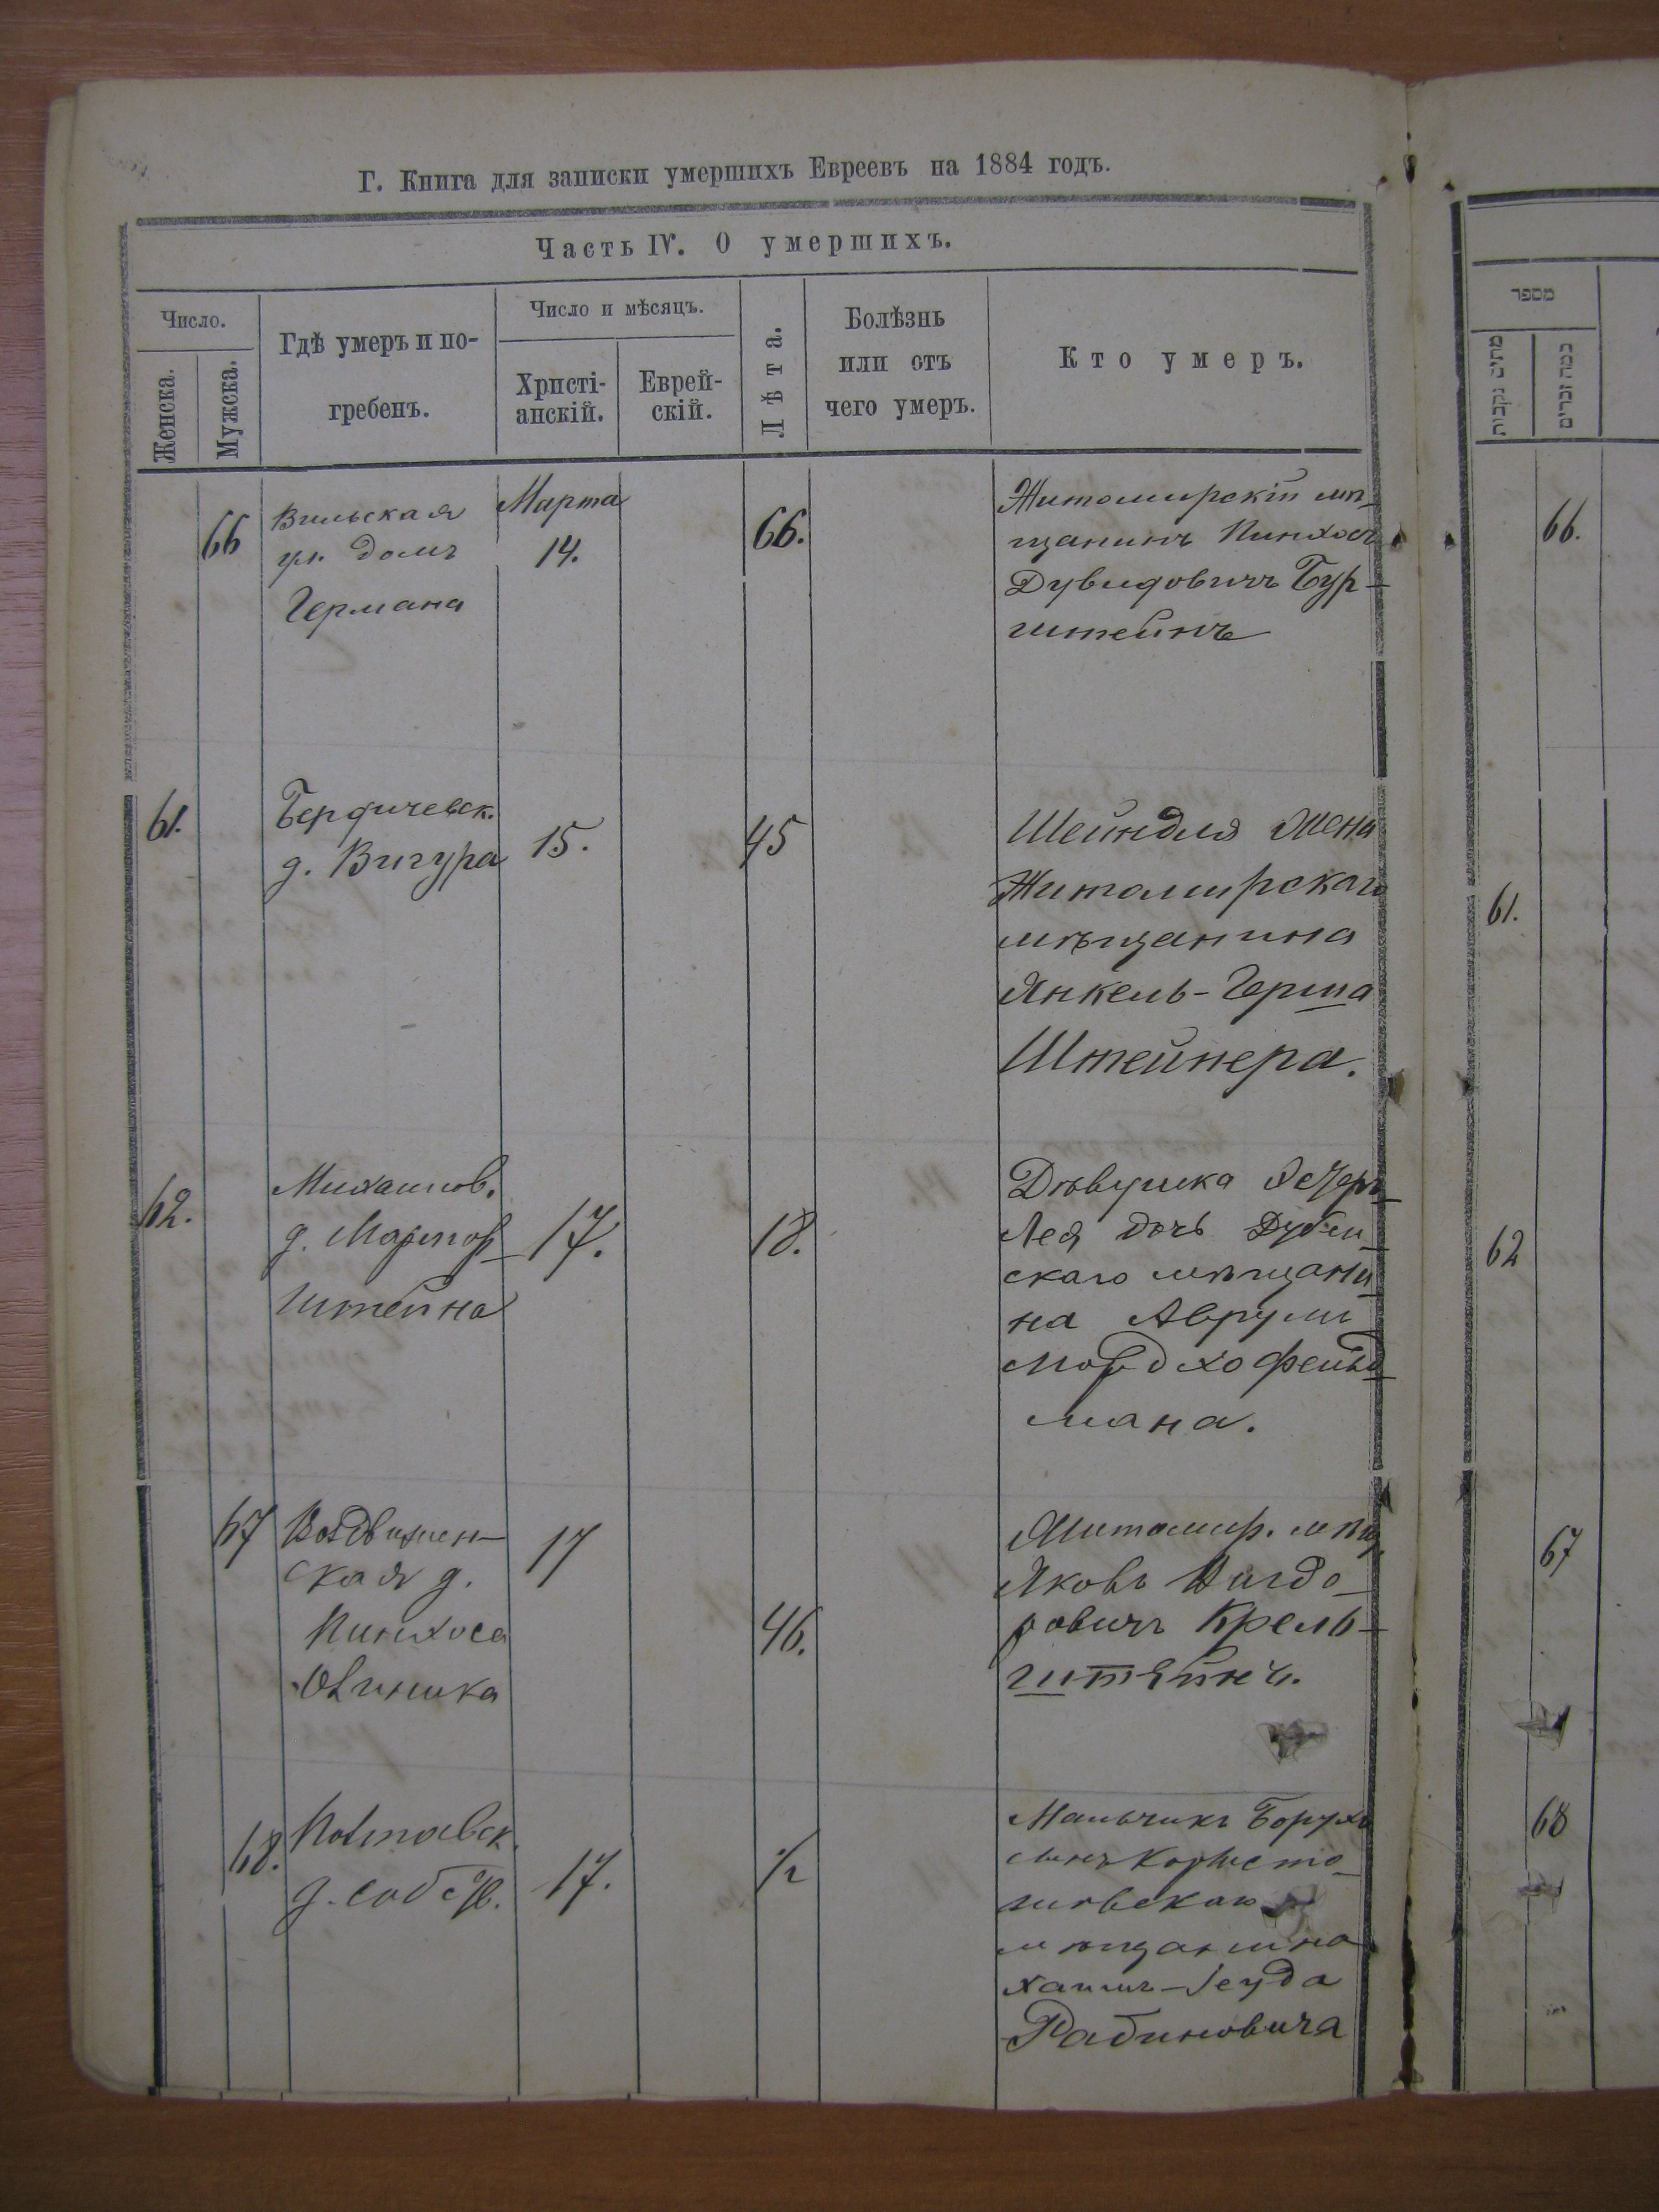 Г. Книга для записки умершихъ Евреевъ на 1884 годъ.
Часть IV. О умершихъ.
Число.
Женска.
Мужска.
Гдѣ умеръ и по-
гребенъ.
Число и мѣсяцъ.
Христі-
анскій.
Еврей-
скій.
Лѣта.
Болѣзнь
или отъ
чего умеръ.
Кто умеръ.
מספר
66
Вильская
ул. домъ
Германа
Марта
14.
66.
Житомирскій мѣ-
щанинъ Пинхосъ
Дувидовичъ Бур-
штейнъ
66.
61.
Бердичевск.
д. Вигура
15.
45
Шейндля жена
Житомирскаго
мѣщанина
Янкель-Герша
Штейнера.
61.
62.
Михайлов.
д. Маргор-
штейна
17.
18.
Дѣвушка
Лея дочь Дубен-
скаго мѣщани-
на Аврумъ
Мордхо Фельд-
мана.
62
67
Воздвижен-
ская д.
Пинхоса
Овчиника
17
46.
Житомир. мѣщ.
Яковъ Вигдо-
ровичъ Крель-
штейнъ.
67
68.
Полтавск.
д. собств.
17.
1/2
Мальчикъ Борухъ
сынъ Коросты-
шевскаго
мѣщанина
Хаимъ-Іеуда
Рабиновича
68